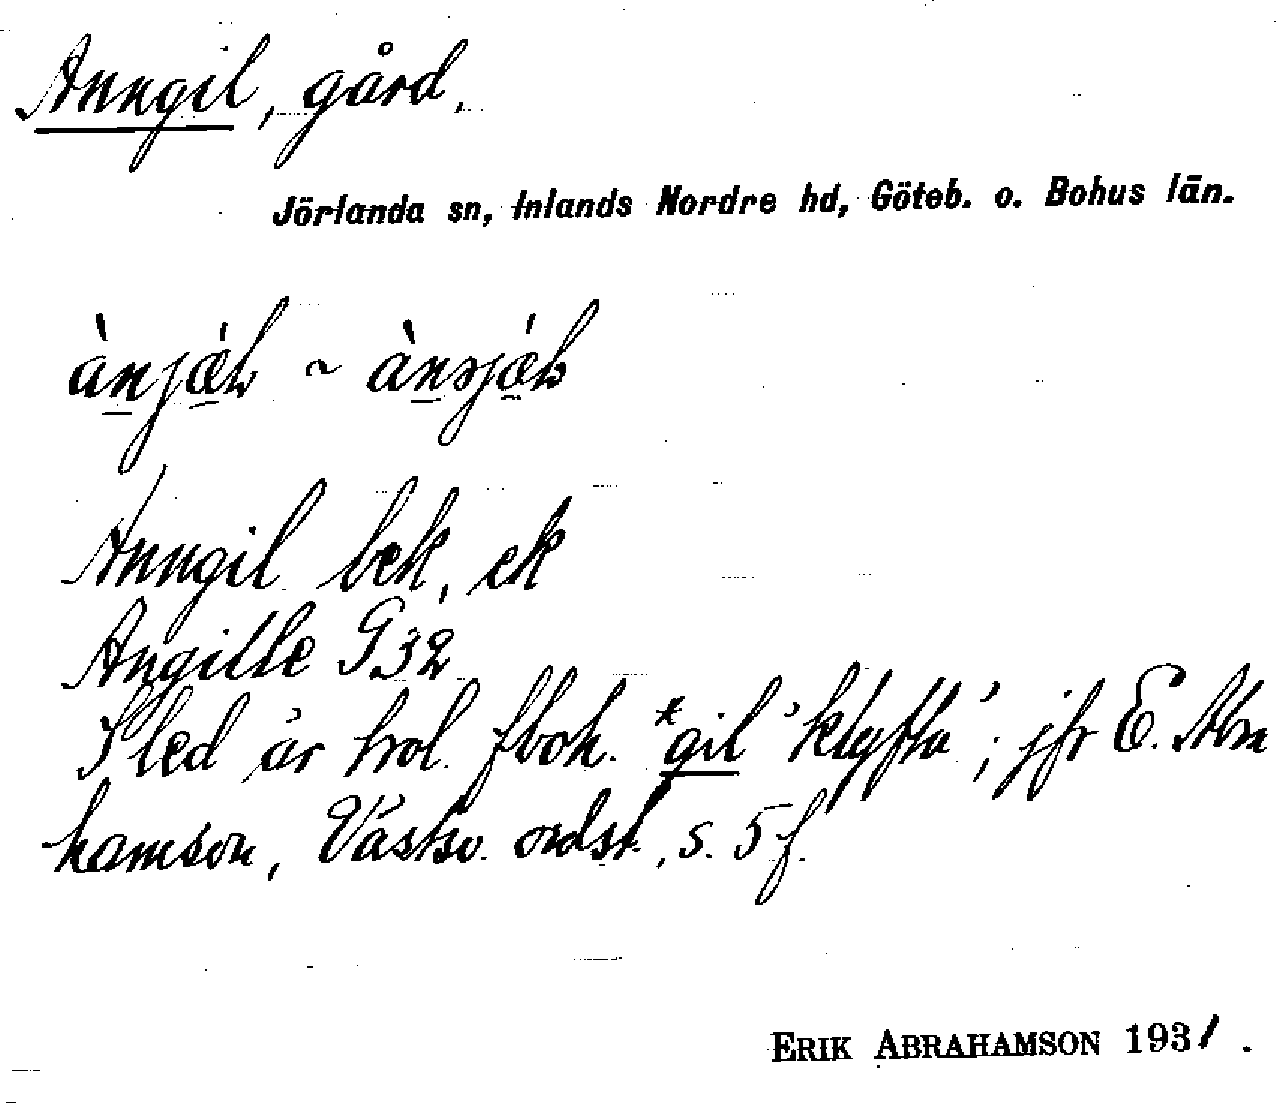 Anngil, gård.
Jörlanda sn, Inlands Nordre hd, Göteb. o. Bohus län.
Anngil bek, ek
Angille G32
S led är trol. fboh. *gil 'klyfta'; jfr E. Abra
hamson, Västsv. ordst., s. 5 f.
ERIK ABRAHAMSON 1931.